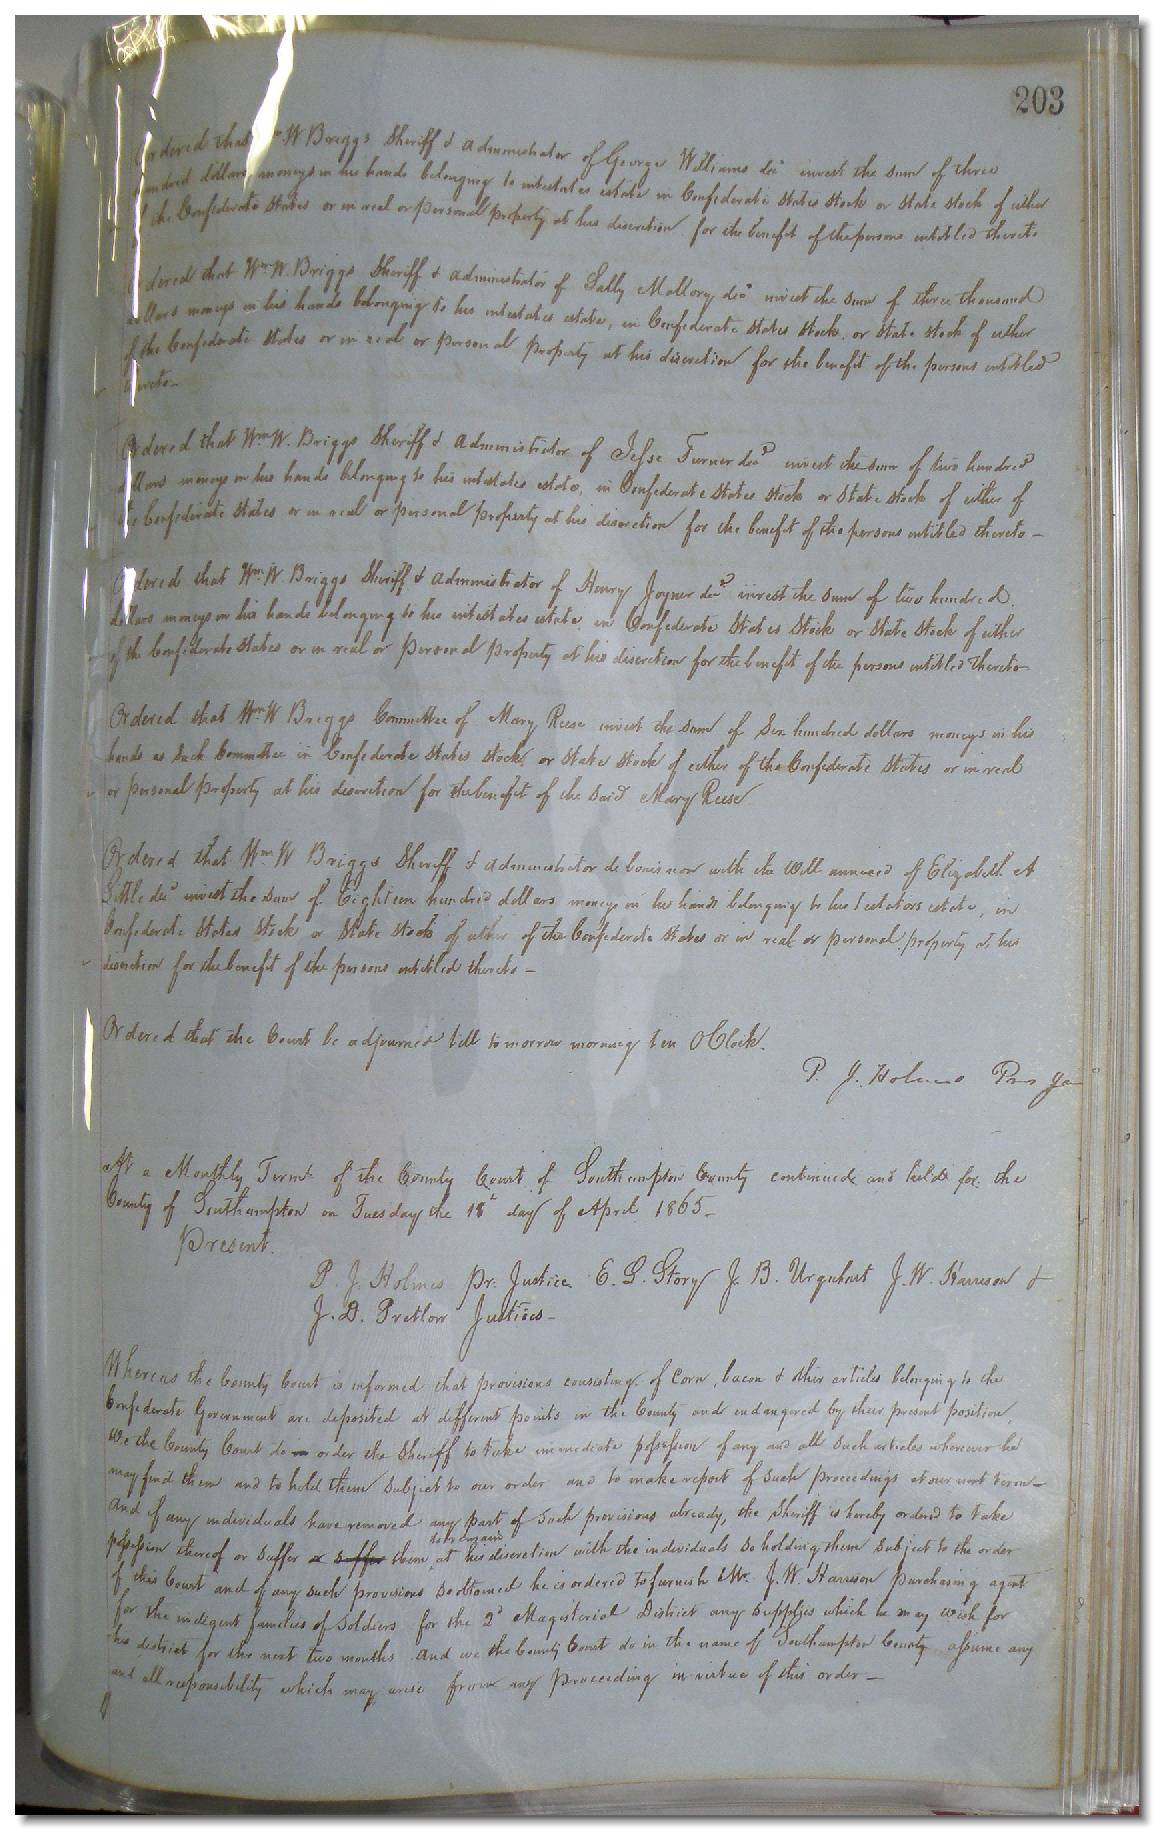 203
Ordered that Wm W Briggs Sheriff & administrator of George Williams decd invest the sum of three
hundred dollars moneys in his hands belonging to intestates estate in Confederate States Stock or State stock of either
of the Confederate States or in real or personal property at his discretion for the benefit of the persons entitled thereto
Ordered that Wm W. Briggs Sheriff & administrator of Sally Mallory decd invest the sum of three thousand
dollars moneys in his hands belonging to his intestates estate, in Confederate States Stock, or State stock of either
of the Confederate States or in real or personal property at his discretion for the benefit of the persons entitled
thereto-
Ordered that Wm W. Briggs Sheriff & administrator of Jesse Turner decd invest the sum of two hundred
dollars moneys in his hands belonging to his intestates estate, in Confederate States Stock or State stock of either of
the Confederate States or in real or personal property at his discretion for the benefit of the persons entitled thereto-
Ordered that Wm W Briggs Sheriff & administrator of Henry Joyner decd invest the sum of two hundred
dollars moneys in his hands belonging to his intestates estate, in Confederate States Stock or State stock of either
of the Confederate States or in real or personal property at his discretion for the benefit of the persons entitled thereto-
Ordered that Wm W Briggs Committee of Mary Reese invest the sum of Six hundred dollars moneys in his
hands as such Committee in Confederate States Stock, or State Stock of either of the Confederate States or in real
or personal property at his discretion for the benefit of the said Mary Reese
Ordered that Wm W Briggs Sheriff & administrator de bonis non with the Will annexed of Elizabeth A
Little decd invest the sum of Eighteen hundred dollars moneys in his hands belonging to his testators estate, in
Confederate States Stock or State Stock of either of the Confederate States or in real or personal property at his
discretion for the benefit of the persons entitled thereto-
Ordered that the Court be adjourned till tomorrow morning ten OClock.
P. J. Holmes Pres
At a Monthly Term of the County Court of Southampton County continued and held for the
County of Southampton on Tuesday the 18t day of April 1865-
Present.
P. J. Holmes Pr. Justice E. S. Story J. B. Urquhart J. W. Harrison &
J. D. Pretlow Justices-
Whereas the County Court is informed that provisions consisting of Corn, bacon & other articles belonging to the
Confederate Government are deposited at different points in the County and endangered by their present position,
We the County Court do order the Sheriff to take immediate possession of any and all such articles wherever he
may find them and to hold them subject to our order and to make report of such proceedings at our next term-
And if any individuals have removed any part of such provisions already, the Sheriff is hereby ordered to take
possession thereof or suffer or suffer them to remain at his discretion with the individuals so holding them subject to the order
of this Court and of any such provisions so obtained he is ordered to furnish Mr. J. W. Harrison purchasing agent
for the indigent families of Soldiers for the 2d Magisterial District any supplies which he may wish for
his district for the next two months. And we the County Court do in the name of Southampton County assume any
and all responsibility which may arise from any proceeding in virtue of this order-